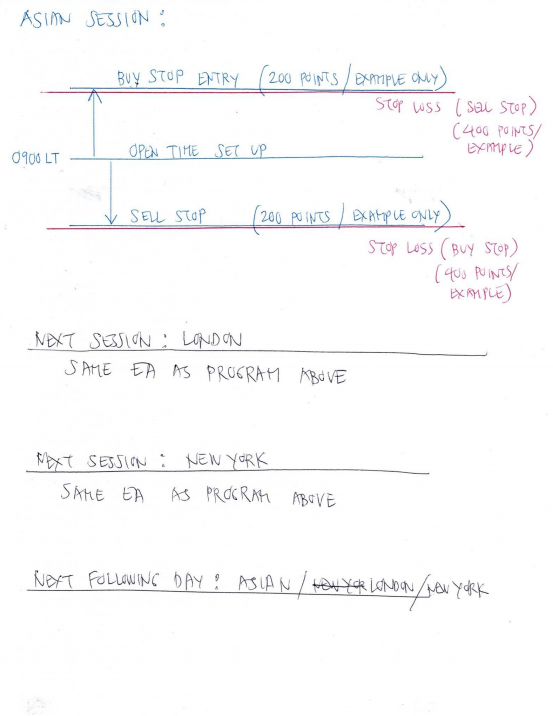 ASIAN SESSION :
BUY STOP ENTRY (200 POINTS / EXAMPLE ONLY)
STOP LOSS (SELL STOP)
(400 POINTS/
EXAMPLE)
0900 LT OPEN TIME SET UP
SELL STOP (200 POINTS / EXAMPLE ONLY)
STOP LOSS (BUY STOP)
(400 POINTS/
EXAMPLE)
NEXT SESSION : LONDON
SAME EA AS PROGRAM ABOVE
NEXT SESSION : NEW YORK
SAME EA AS PROGRAM ABOVE
NEXT FOLLOWING DAY : ASIAN / NEW YOR LONDON / NEW YORK